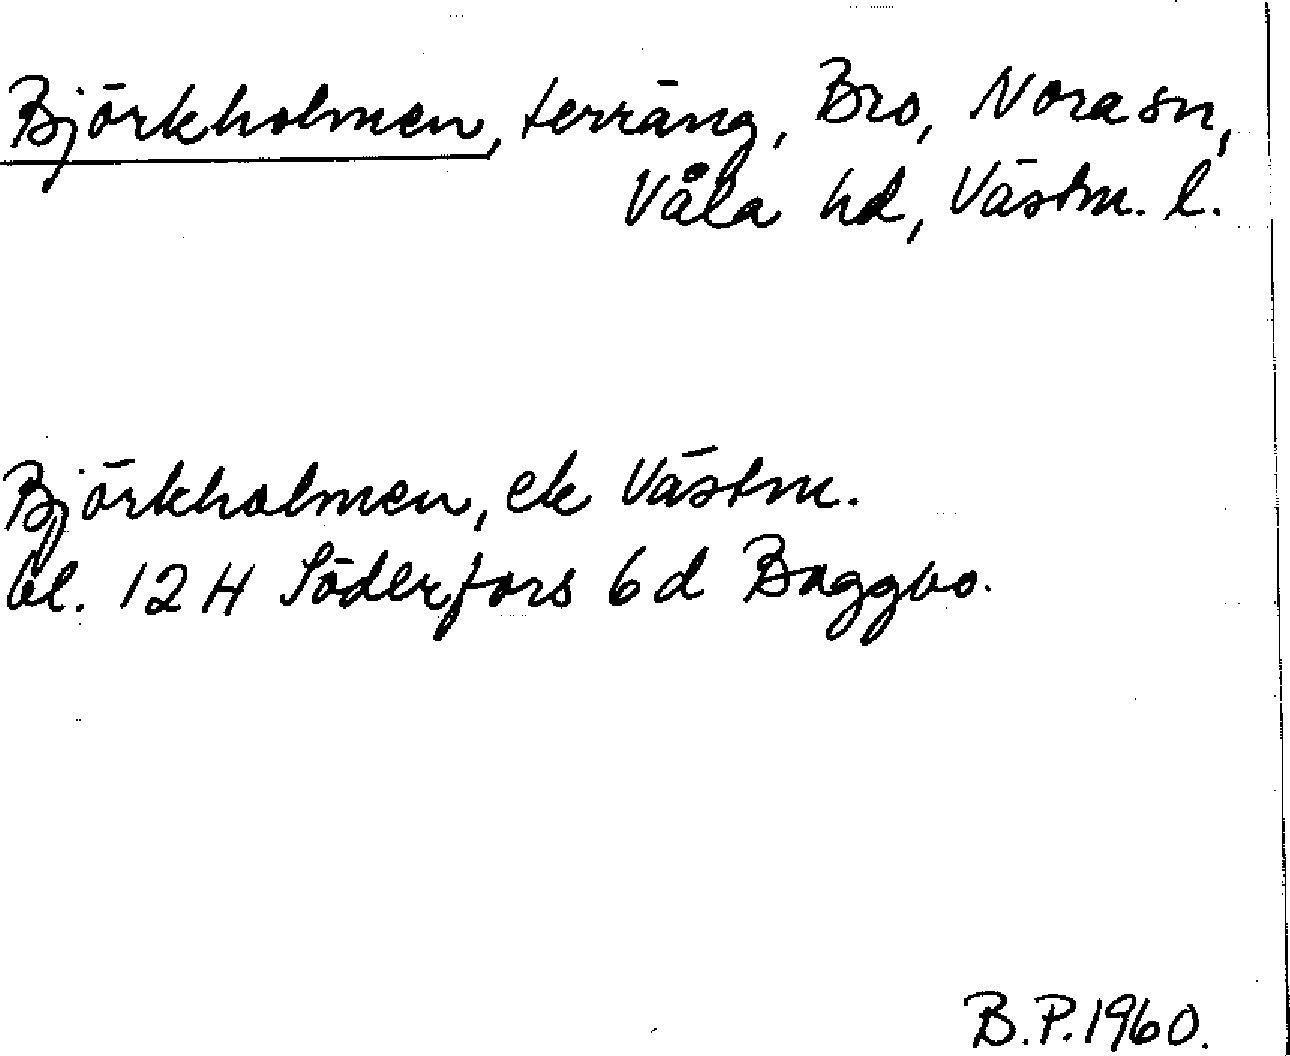 Björkholmen, terräng, Bro, Nora sn,
Våla hd, Västm. l.
Björkholmen, ek Västm.
bl. 12 H Söderfors 6 d Baggbo.
B.P. 1960.